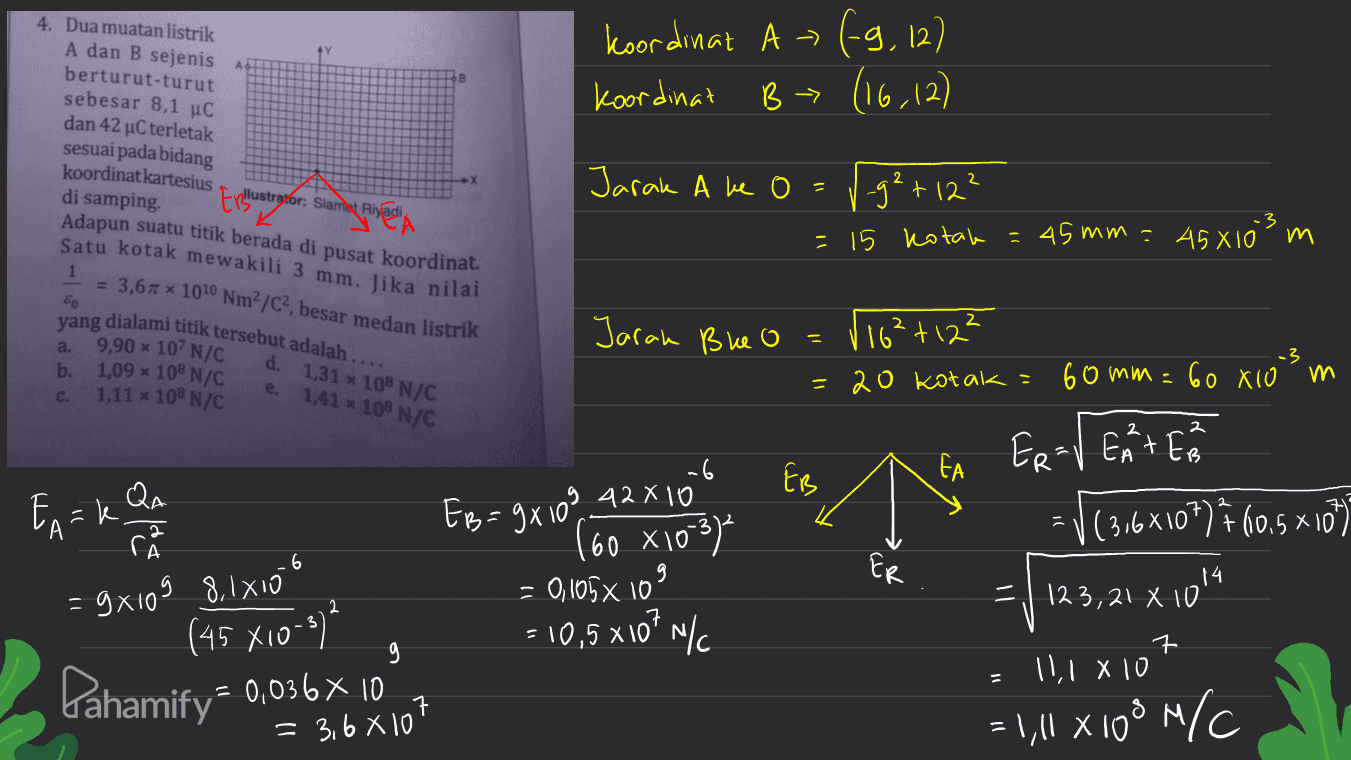 4. Dua muatan listrik
A dan B sejenis
berturut-turut
sebesar 8,1 μC
dan 42 μC terletak
sesuai pada bidang
koordinat kartesius
di samping.
A
Y
B
X
Ilustrator: Slamet Riyadi
EB
EA
Adapun suatu titik berada di pusat koordinat.
Satu kotak mewakili 3 mm. Jika nilai
1/ε₀ = 3,6π × 10¹⁰ Nm²/C², besar medan listrik
yang dialami titik tersebut adalah . . . .
a. 9,90 × 10⁷ N/C
b. 1,09 × 10⁸ N/C
c. 1,11 × 10⁸ N/C
d. 1,31 × 10⁸ N/C
e. 1,41 × 10⁸ N/C
koordinat A → (-9, 12)
koordinat B → (16, 12)
Jarak A ke O = √-9² + 12²
= 15 kotak = 45 mm = 45 × 10⁻³ m
Jarak B ke O = √16² + 12²
= 20 kotak = 60 mm = 60 × 10⁻³ m
EA = k QA/rA²
= 9×10⁹ 8,1×10⁻⁶/(45 ×10⁻³)²
= 0,036 × 10⁹
= 3,6 × 10⁷
EB = 9×10⁹ 42×10⁻⁶/(60 ×10⁻³)²
= 0,105 × 10⁹
= 10,5 × 10⁷ N/C
EB
EA
ER
ER = √EA² + EB²
= √(3,6×10⁷)² + (10,5 × 10⁷)²
= √123,21 × 10¹⁴
= 11,1 × 10⁷
= 1,11 × 10⁸ N/C
Pahamify